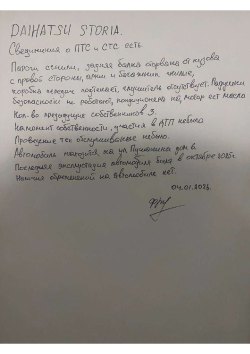 DAIHATSU STORIA.
Свединиия о ПТС и СТС есть
Пороги сгнили, задняя балка оторвана от кузова
с правой стороны, арки и багажник гнилые,
коробка передач подтекает, глушитель отсутствует. Подушки
безопасности не работают, кондиционера нет, мотор ест масло
Кол-во предидущие собственников 3.
На момент собственности, участия в ДТП небыло
Проведение тех обслуживание небыло.
Автомобиль находится на ул. Пушкина дом 6.
Последняя эксплуатация автомобиля была в октябре 2025г.
Наличия обременений на автомобиле нет.
04.01.2026.